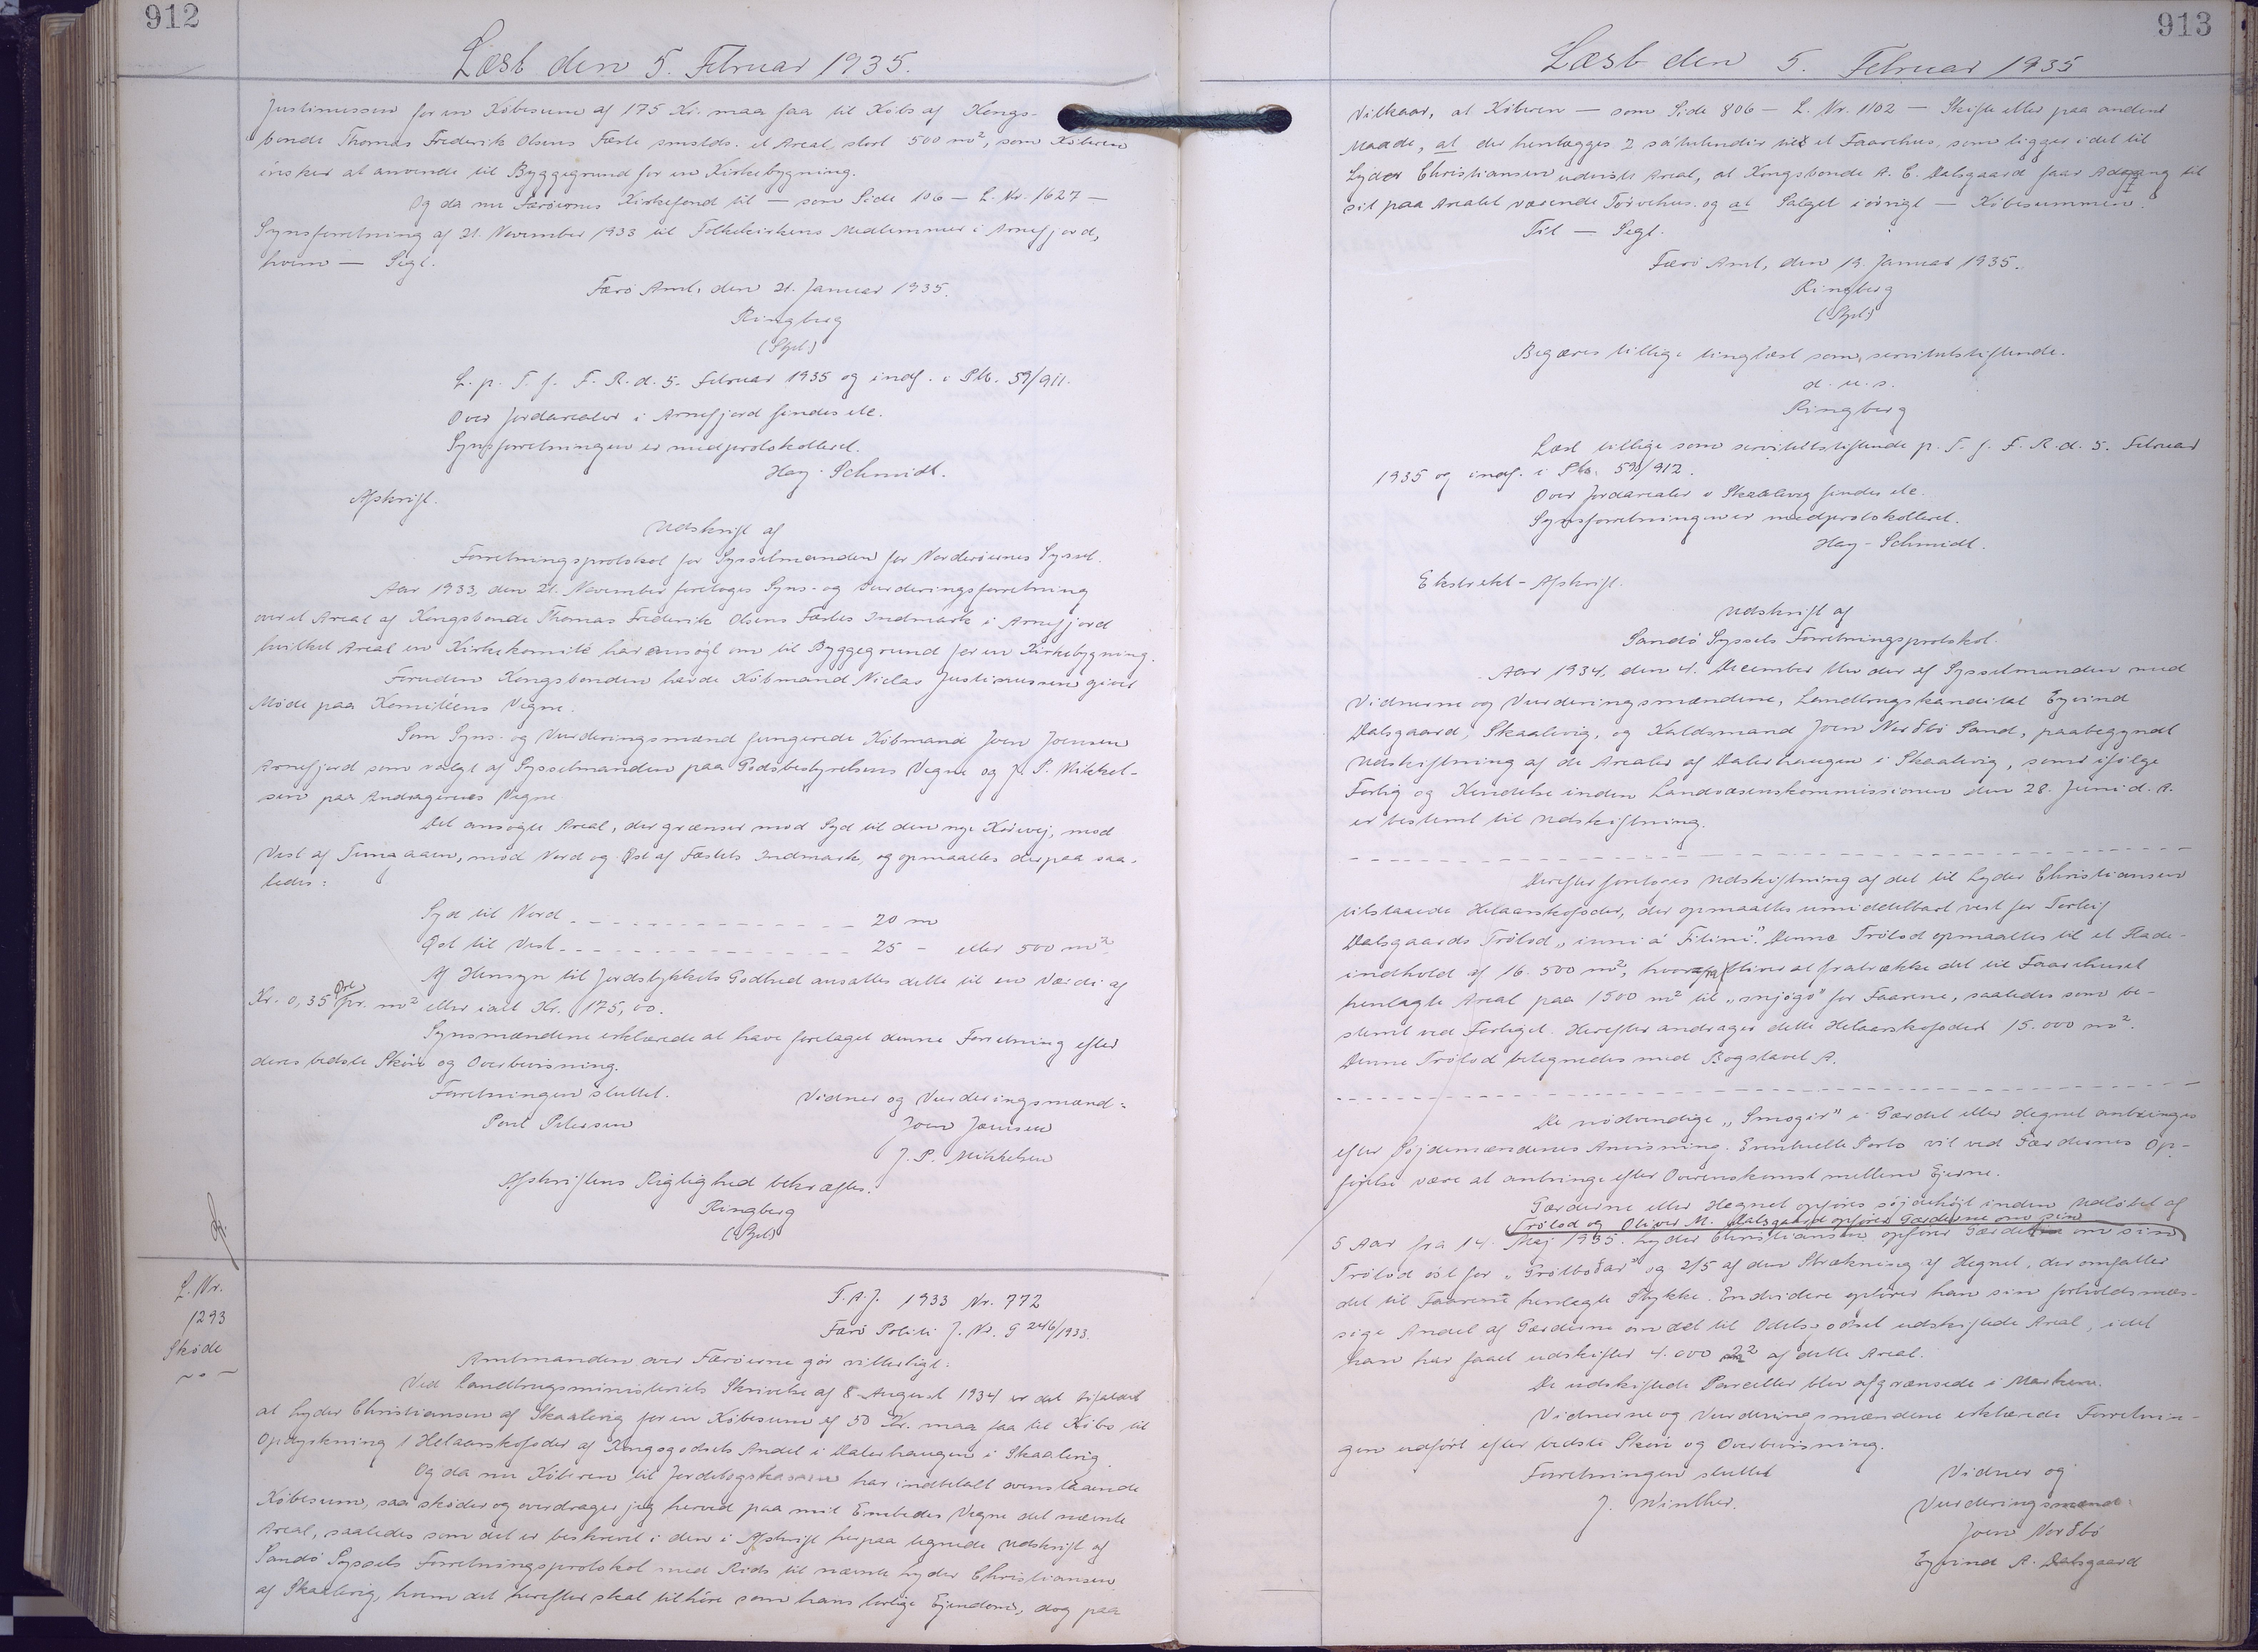 912
Læst den 5. Februar 1935.
Justinussen for en Köbesum af 175 Kr. maa faa til Köbs af Kongs-
bonde Thomas Frederik Olsens Fæste smstds. et Areal, stort 500 m², som Köberen
önsker at anvende til Byggegrund for en Kirkebygning.
Og da nu Færöernes Kirkefond til — som Side 106 — L. Nr. 1627 —
Synsforretning af 21. November 1933 til Folkekirkens Medlemmer i Arnefjord,
hvem — Segl.
Færö Amt, den 21. Januar 1935.
Ringberg
(Sgd.)
L. p. T. f. F. R. d. 5. Februar 1935 og indf. i Ptk. 59/911.
Over Jordarealer i Arnefjord findes etc.
Synsforretningen er medprotokolleret.
Hay-Schmidt.
Afskrift.
Udskrift af
Forretningsprotokol for Sysselmanden for Norderöernes Syssel.
Aar 1933, den 21. November foretoges Syns- og Vurderingsforretning
over et Areal af Kongsbonde Thomas Frederik Olsens Fæstes Indmark i Arnefjord
hvilket Areal en Kirkekomité har ansögt om til Byggegrund for en Kirkebygning.
Foruden Kongsbonden havde Köbmand Niclas Justinussen givet
Möde paa Komitéens Vegne.
Som Syns- og Vurderingsmænd fungerede Köbmand Joen Joensen
Arnefjord som valgt af Sysselmanden paa Godsbestyrelsens Vegne og J. P. Mikkel-
sen paa Andragernes Vegne.
Det ansögte Areal, der grænser mod Syd til den nye Kørevej, mod
Vest af Tungaaen, mod Nord og Øst af Fæstets Indmark, og opmaaltes derpaa saa-
ledes:
Syd til Nord - - - - - - - - - - - - - 20 m
Øst til Vest - - - - - - - - - - - - - 25 - eller 500 m²
Af Hensyn til Jordstykkets Godhed ansattes dette til en Værdi af
Kr. 0,35 Øre pr. m² eller ialt Kr. 175,00.
Synsmændene erklærede at have foretaget denne Forretning efter
deres bedste Skön og Overbevisning.
Forretningen sluttet. Vidner og Vurderingsmænd:
Poul Petersen Joen Joensen
J. P. Mikkelsen
Afskriftens Rigtighed bekræftes.
Ringberg
(Sgd.)
L. Nr.
1293
Sköde
F. A. J. 1933 Nr. 772
Færö Politi J. Nr. G 246/1933.
Amtmanden over Færöerne gör vitterligt:
Ved Landbrugsministeriets Skrivelse af 8. August 1934 er det tilladt
at Lyder Christiansen af Skaalevig for en Köbesum af 50 Kr. maa faa til Köbs til
Opdyrkning 1 Helaarskofoder af Kongsgodsets Andel i Dalerhaugen i Skaalevig.
Og da nu Köberen til Jordebogskassen har indbetalt ovenstaaende
Köbesum, saa sköder og overdrager jeg herved paa mit Embedes Vegne det nævnte
Areal, saaledes som det er beskrevet i den i Afskrift herpaa tegnede Udskrift af
Sandö Syssels Forretningsprotokol med Rids til nævnte Lyder Christiansen
af Skaalevig, hvem det herefter skal tilhöre som hans lovlige Ejendom, dog paa
913
Læst den 5. Februar 1935
Vilkaar, at Köberen — som Side 806 — L. Nr. 1102 — Skifte eller paa anden
Maade, at der henlægges 2 sátulendir ved et Faarehus, som ligger i det til
Lyder Christiansen udviste Areal, at Kongsbonde A. C. Dalsgaard faar Adgang til
sit paa Arealet værende Törvehus og at Salget iövrigt — Köbesummen.
Til — Segl.
Færö Amt, den 19. Januar 1935.
Ringberg
(Sgd.)
Begæres tillige tinglæst som servitutstiftende.
d. u. s.
Ringberg
Læst tillige som servitutstiftende p. T. f. F. R. d. 5. Februar
1935 og indf. i Ptk. 59/912.
Over Jordarealer i Skaalevig findes etc.
Synsforretningen er medprotokolleret.
Hay-Schmidt.
Ekstrakt-Afskrift.
Udskrift af
Sandö Syssels Forretningsprotokol.
Aar 1934, den 4. December blev der af Sysselmanden med
Vidnerne og Vurderingsmændene, Landbrugskandidat Eyvind
Dalsgaard, Skaalevig, og Kaldsmand Joen Norðbö Sand, paabegyndt
Udskiftning af de Arealer af Dalerhaugen i Skaalevig, som ifölge
Forlig og Kendelse inden Landvæsenskommissionen den 28. Juni d. A.
er bestemt til Udskiftning.
Derefter foretoges Udskiftning af det til Lyder Christiansen
tilstaaede Helaarskofoder, der opmaaltes umiddelbart vest for Torleif
Dalsgaards Trölod „inni á Fitini". Denne Trölod opmaaltes til et Flade-
indhold af 16.500 m², hvorfra bliver at fratrække det til Faarehuset
henlagte Areal paa 1500 m² til „smjögö" for Faarene, saaledes som be-
stemt ved Forliget. Herefter andrager dette Helaarskofoder 15.000 m².
Denne Trölod betegnedes med Bogstavet A.
De nödvendige „Smogir" i Gærdet eller Hegnet anbringes
efter Söjdemændenes Anvisning. Eventuelle Porte vil ved Gærdernes Op-
förelse være at anbringe efter Overenskomst mellem Ejerne.
Gærderne eller Hegnet opföres söjdehögt inden Udlöbet af
Trölod og Oliver M. Dalsgaard opförer Gærderne om sin
5 Aar fra 14. Maj 1935. Lyder Christiansen opförer Gærderne om sin
Trölod öst for „Gröllboðar" og 2/5 af den Strækning af Hegnet, der omfatter
det til Faarene henlagte Stykke. Endvidere opförer han sin forholdsmæs-
sige Andel af Gærderne om det til Odelsgodset udskiftede Areal, idet
han har faaet udskiftet 4.000 m² af dette Areal.
De udskiftede Parceller blev afgrænsede i Marken.
Vidnerne og Vurderingsmændene erklærede Forretnin-
gen udfört efter bedste Skön og Overbevisning.
Forretningen sluttet Vidner og
J. Winther. Vurderingsmænd:
Joen Norðbö
Eyvind A. Dalsgaard